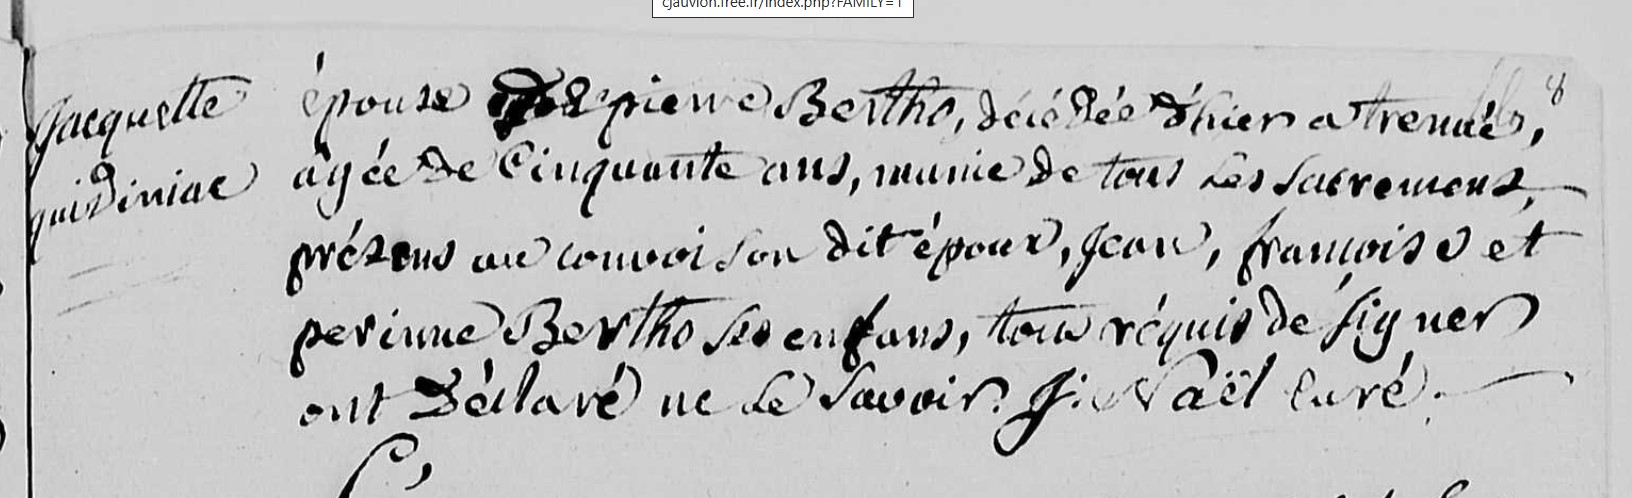 cjauvion.free.fr/index.php?FAMILY=1
8
Jacquette
quidiniac
épouse de pierre Bertho, décédée d'hier a
âgée de Cinquante ans, munie de tous les sacremens,
présens au convoi son dit époux, Jean, françoise et
perinne Bertho ses enfans, tous réquis de signer
ont déclaré ne le savoir. J. Naël curé.